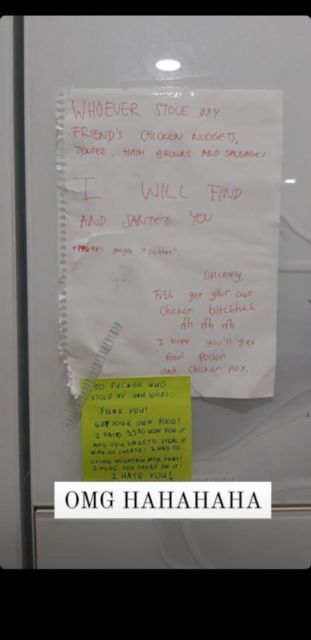 WHOEVER STOLE MY
FRIEND'S CHICKEN NUGGETS,
TENDER, HASH BROWNS AND SAUSAGES
I WILL FIND
AND SANTET YOU
google "santet"
Sincerely,
F.U. get your own
chicken bitchhhh
I hope you'll get
food poison
and chicken pox.
TO FUCKER WHO
STOLE MY HAM SLICES:
FUCK YOU!
GET YOUR OWN FOOD!
I PAID 3330 WON FOR IT
AND YOU DARE TO STEAL IT
I HAD TO
CLIMB MOUNTAIN FOR THAT!
I HOPE YOU CHOKE ON IT!
I HATE YOU!
OMG HAHAHAHA